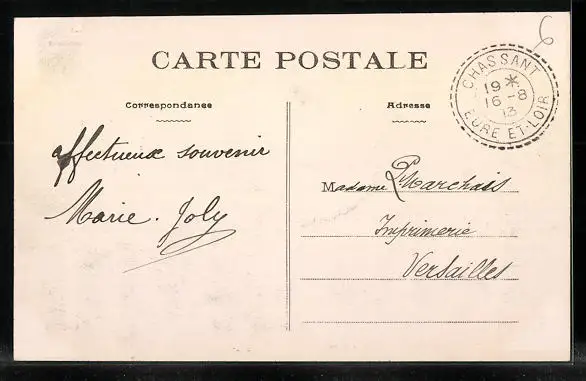 CARTE POSTALE
6
CHASSANT
19 *
16 - 8
13
EURE ET-LOIR
Correspondance
Adresse
affectueux souvenir
Marie. Joly
Madame Marchais
Imprimerie
Versailles